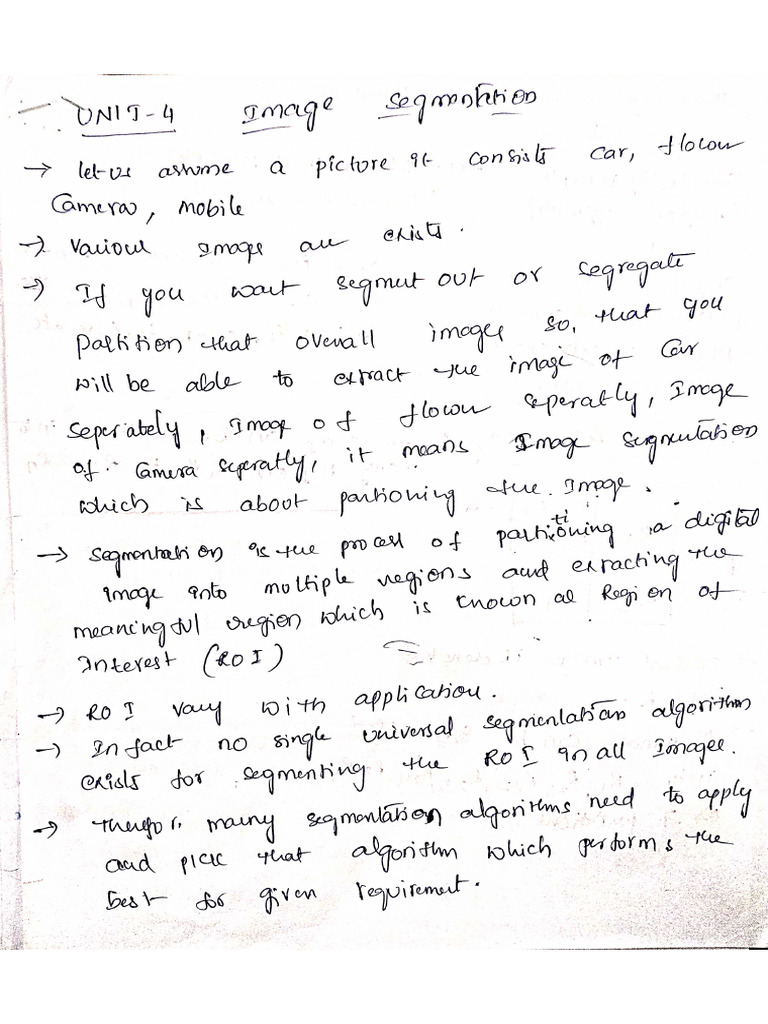 UNIT-4 Image Segmentation
→ let us assume a picture it consists car, flower
Camera, mobile
→ Various Image are exists.
→ If you want segment out or segregate
Partition that overall images so, that you
will be able to extract the image of Car
seperiately, Image of flower seperatly, Image
of Camera seperatly, it means Image segmentation
which is about partioning the Image.
→ Segmentation is the process of partitioning a digital
image into multiple regions and extracting the
meaningful region which is known as Region of
Interest (ROI)
→ ROI vary with application.
→ In fact no single universal segmentation algorithm
exists for segmenting the ROI in all Images.
→ Therefor, many segmentation algorithms need to apply
and pick that algorithm which performs the
best for given requirement.